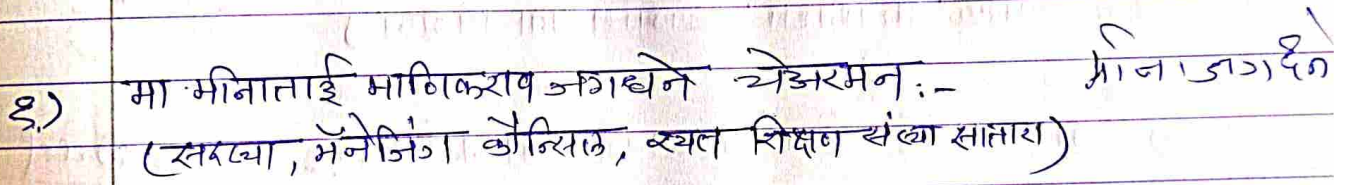 १.) मा. मीनाताई माणिकराव जगधने चेअरमन :- मीना जगधने
(सदस्या, मॅनेजिंग कौन्सिल, रयत शिक्षण संस्था सातारा)